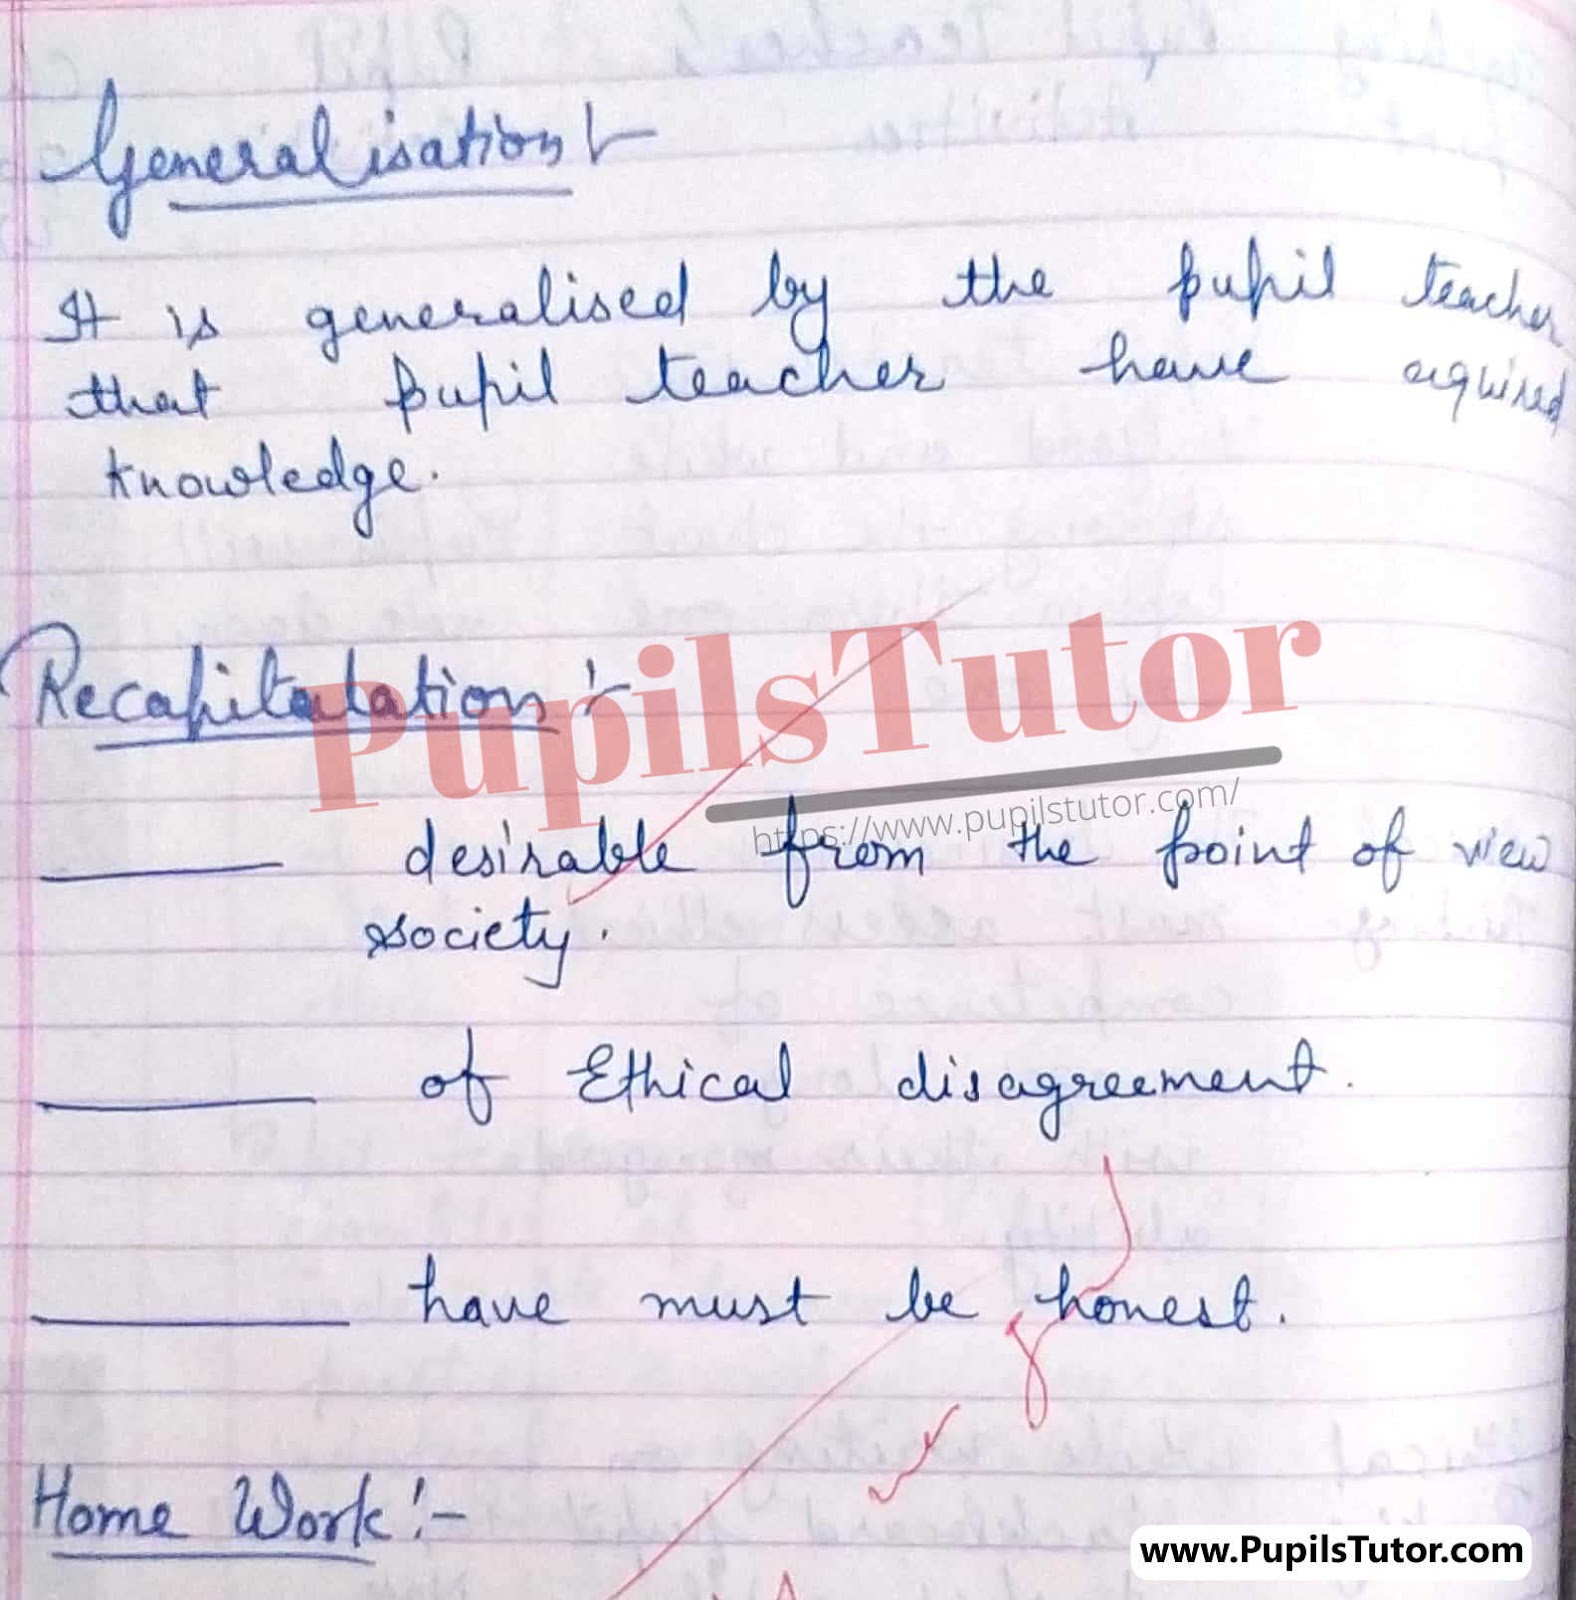 Generalisation :-
It is generalised by the pupil teacher
that pupil teacher have aquired
knowledge.
Recapitalation :-
PupilsTutor
https://www.pupilstutor.com/
______ desirable from the point of view
society.
______ of Ethical disagreement.
______ have must be honest.
Home Work :-
www.PupilsTutor.com